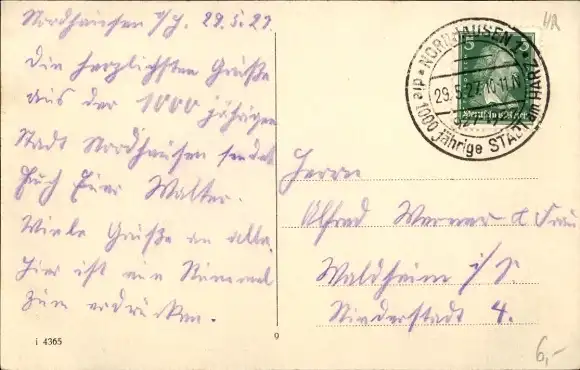 Nordhausen a/H. 29.5.27.
Die herzlichsten Grüße
aus der 1000 jährigen
Stadt Nordhausen sendet
Euch Euer Walter.
Viele Grüße an alle.
Hier ist ein Rummel
zum erdrücken.
i 4365
9
NORDHAUSEN
29.5.27.10-11
927-1927
die 1000 jährige STADT am HARZ
5
Deutsches Reich
Herrn
Alfred Werner & Frau
Waldheim i/S.
Niederstadt 4.
6,-